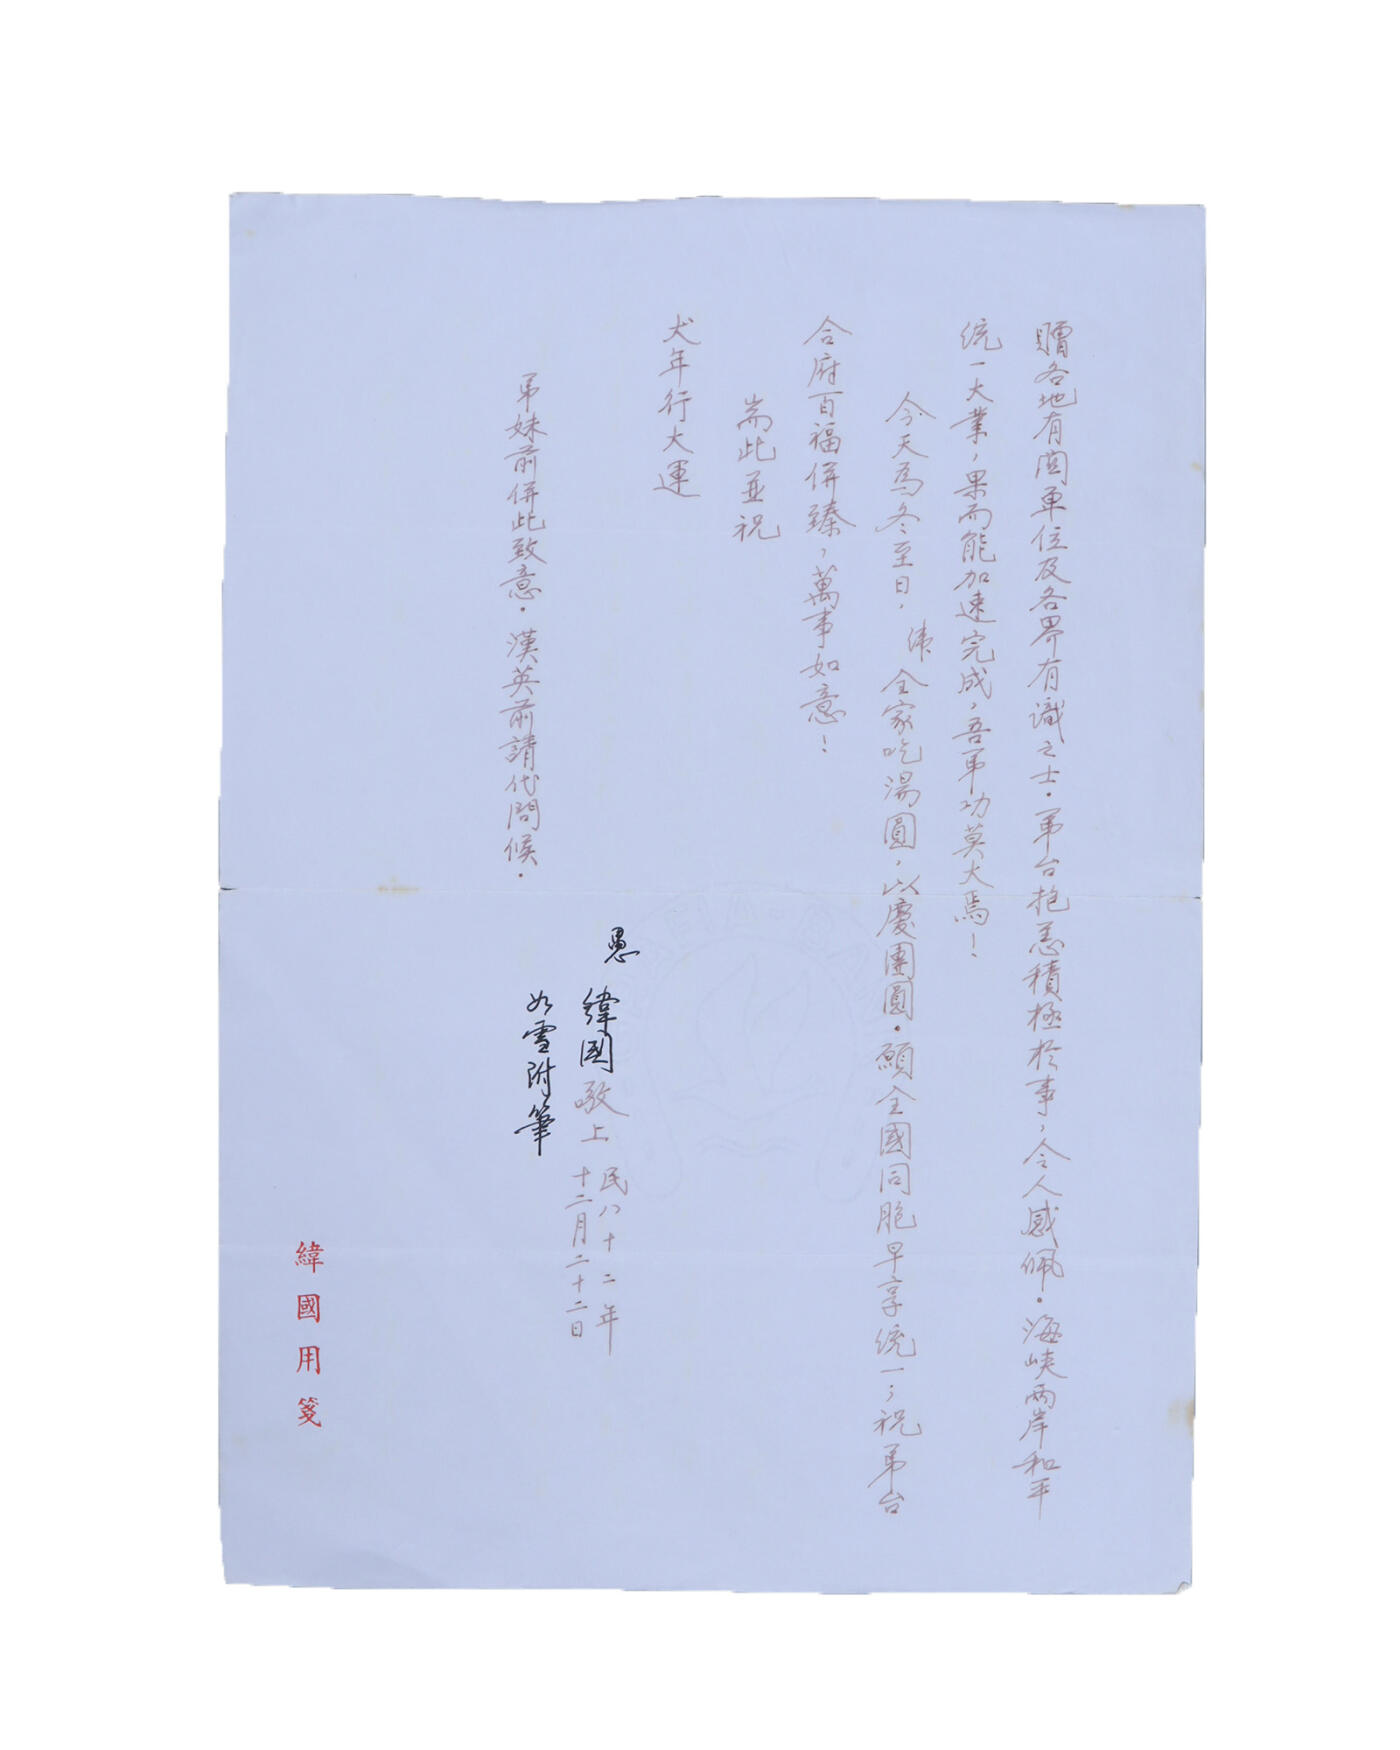 贈各地有関單位及各界有識之士。弟台抱恙積極於事，令人感佩。海峽兩岸和平
統一大業，果而能加速完成，吾弟功莫大焉！
今天為冬至日，緯全家吃湯圓，以慶團圓。願全國同胞早享統一；祝弟台
合府百福併臻，萬事如意！
耑此並祝
犬年行大運
愚 緯國敬上 民八十二年
十二月二十二日
如雪附筆
弟妹前併此致意。漢英前請代問候。
緯國用箋